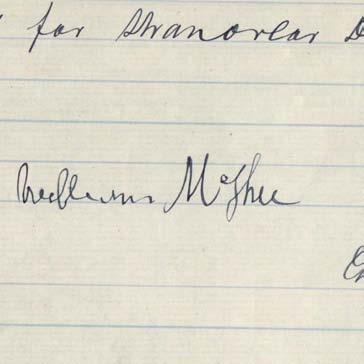 for Stranorlar D
William McGhee